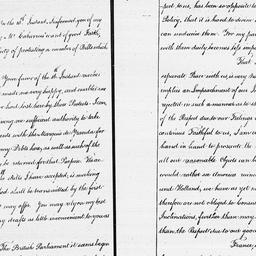 In the 10th Instant, informed you of my
Mr Cabarrus's want of good Faith,
of protesting a number of Bills which
Your favor of the 11 Instant
made me very happy, and enables me
had lost here by those Protests. I am
giving me sufficient authority to take
with the Marquis de Yranda for
my Bills here, as well as such of the
be returned for that Purpose. We are
the Bills I have accepted, is making
shall be transmitted by the first
may offer. You may rely my best
my drafts as little inconvenient to you as
The British Parliament it seems began
past to us, has been so opposite to
Policy, that it is hard to divine
can undermine them. For my part
with them daily becomes less
That
separate Peace with us, is very
implies an Impeachment of our
rejected in such a manner as to
of the Respect due to our Feelings
continues Faithful to us, I am
hand in hand to prosecute the
all our reasonable Objects can be
would rather see America ruined
and Holland, we have as yet no
therefore are not obliged to
Inclinations, further than may
than the Respect due to our good
France,